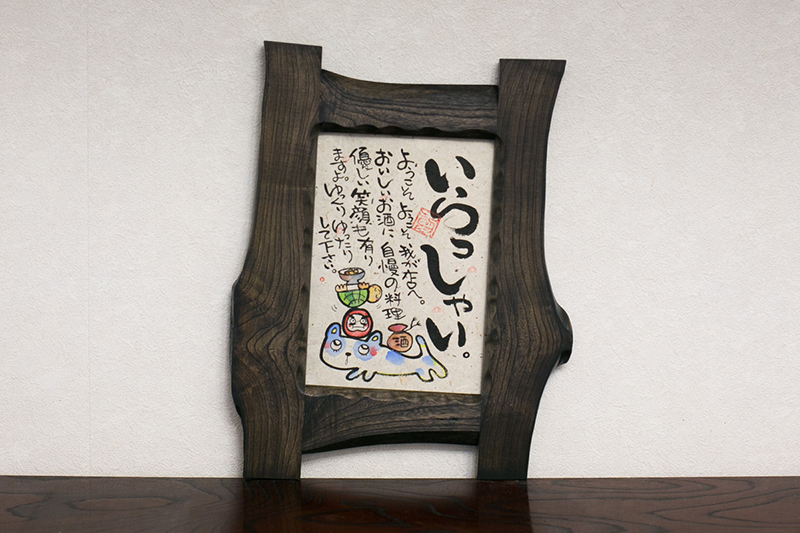 いらっしゃい。
ようこそ ようこそ 我が店へ。
おいしいお酒に 自慢の料理
優しい笑顔も有り
ますよ。ゆっくりゆったり
して下さい。
酒